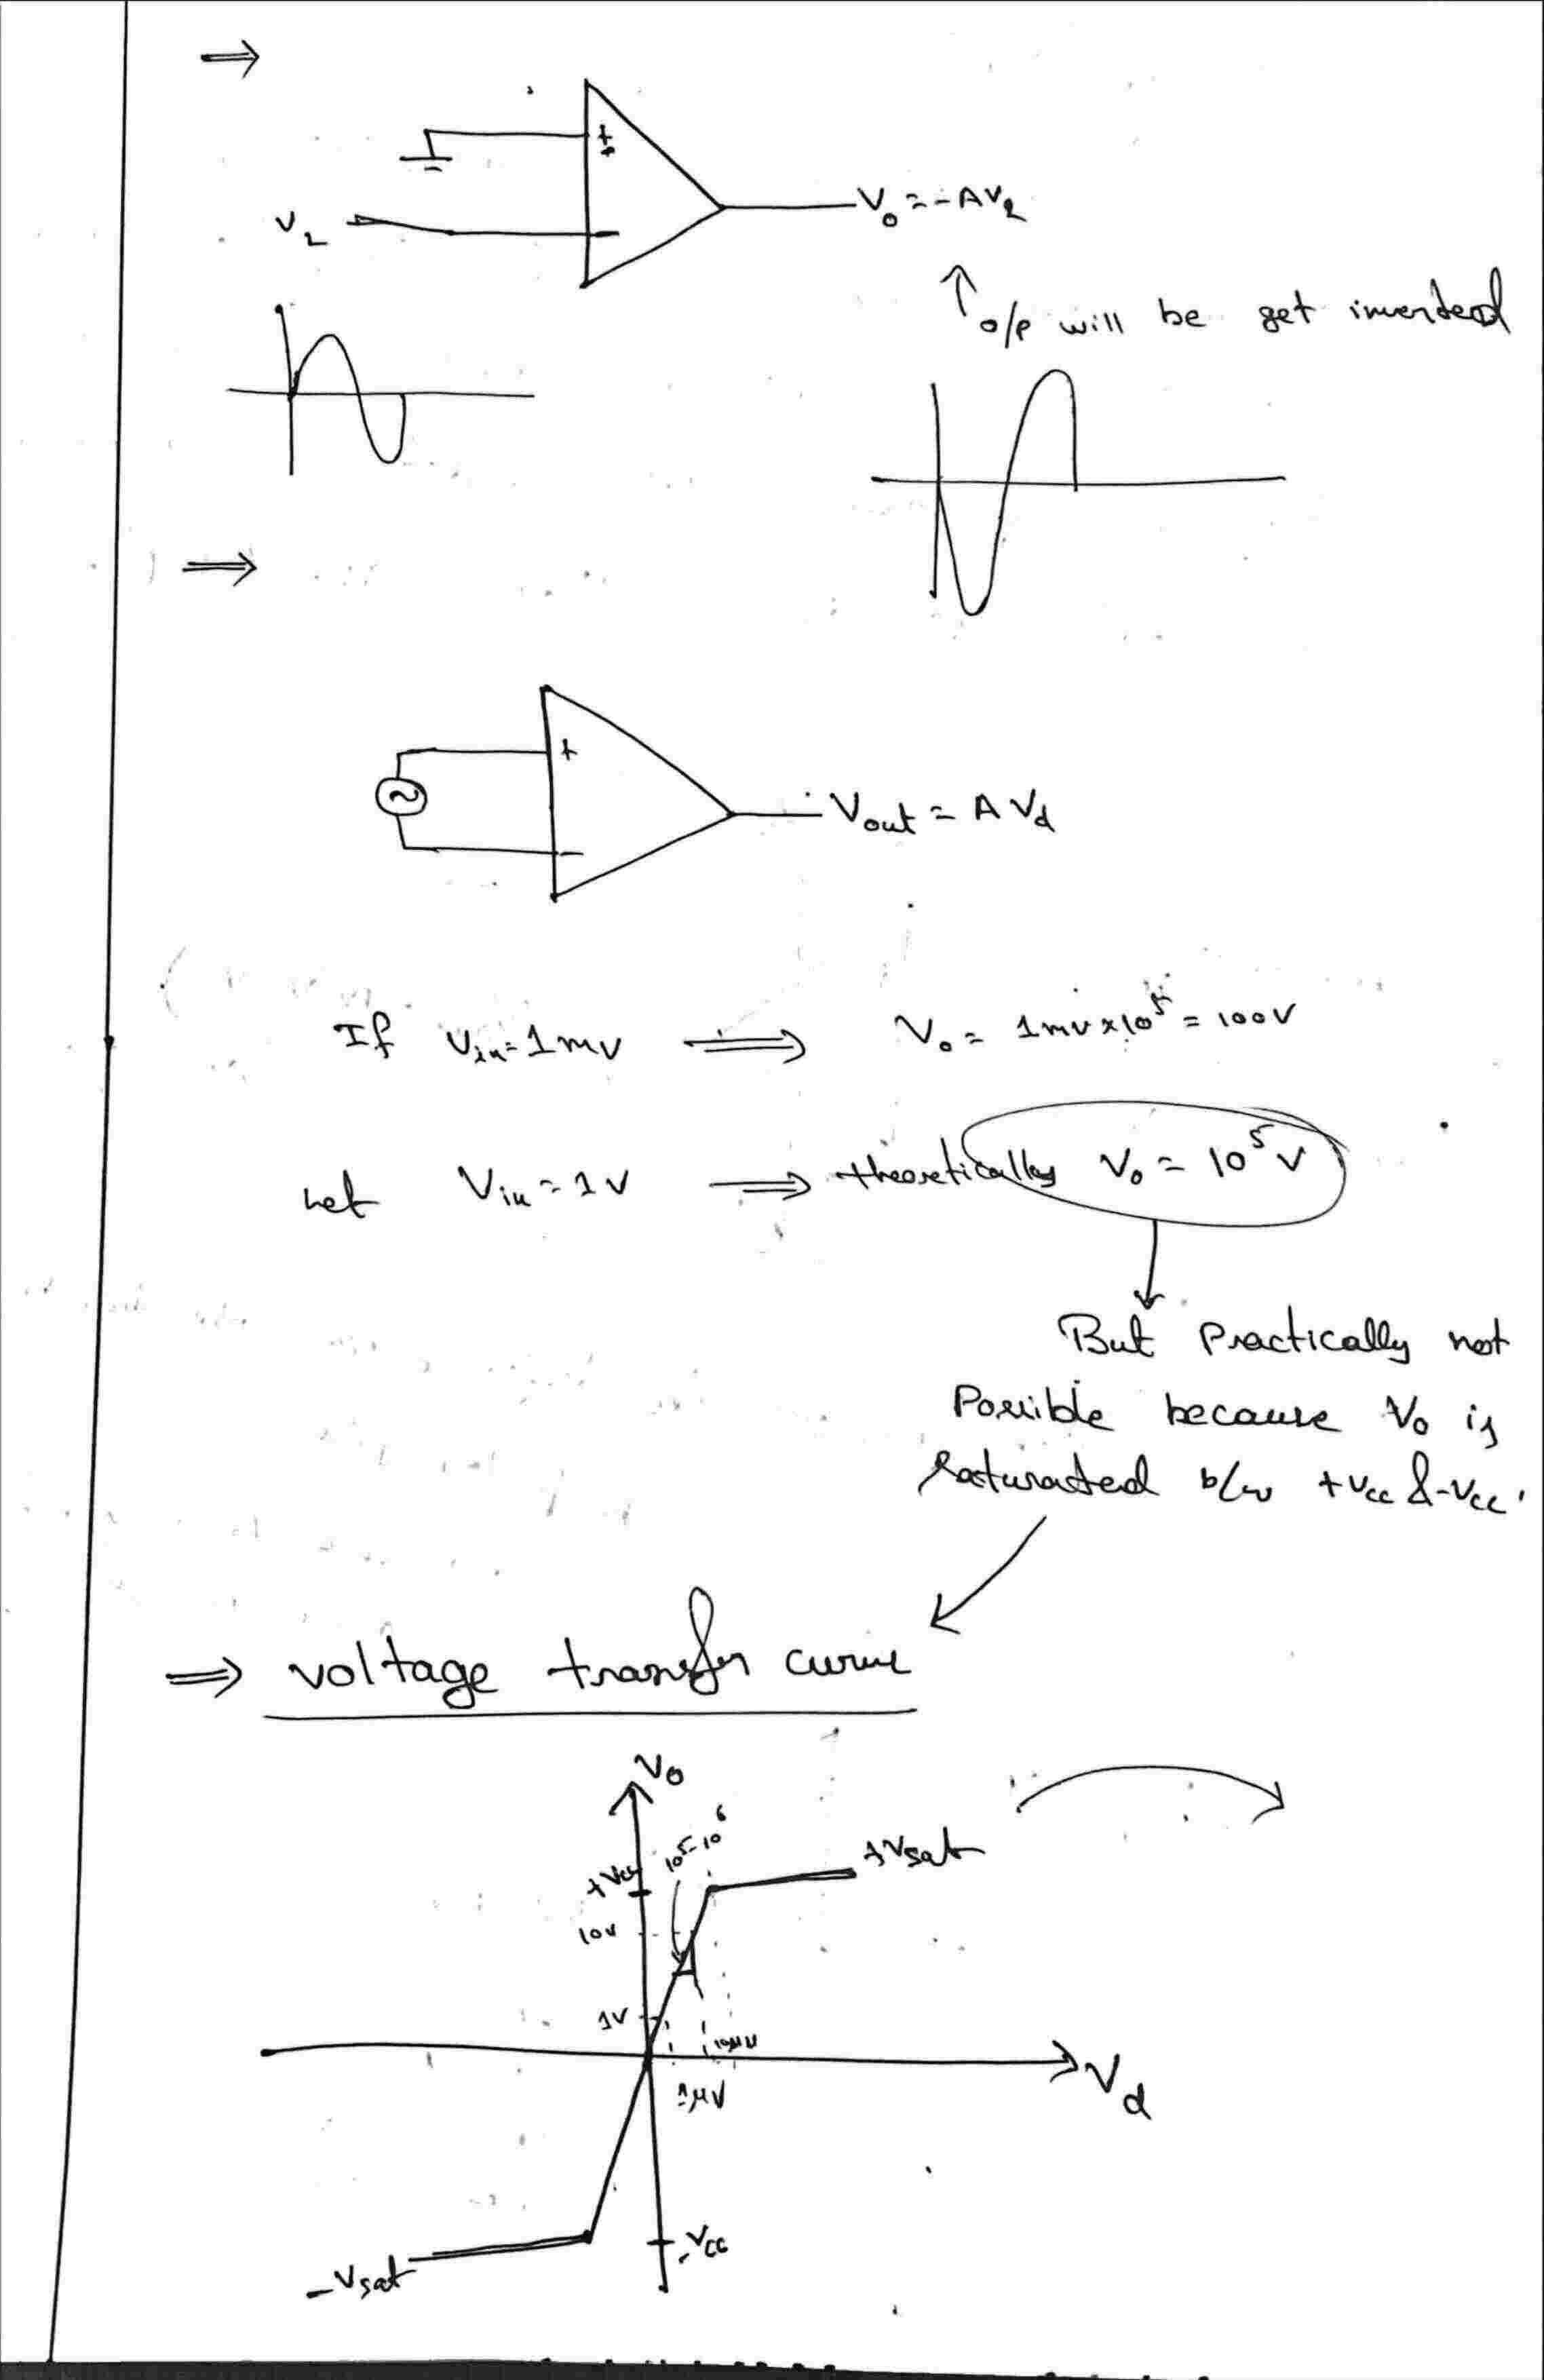 ⇒
+
V₂
-
V₀ = -AV₂
↑ o/p will be get inverted
⇒
+
-
Vout = A Vd
If Vin = 1mV ⇒ V₀ = 1mv×10⁵ = 100V
Let Vin = 1V ⇒ theoretically V₀ = 10⁵ V
But Practically not
Possible because V₀ is
saturated b/w +Vcc & -Vcc.
⇒ voltage transfer curve
V₀
10⁵-10⁶
+Vsat
+Vcc
10V
1V
10μV
1μV
Vd
-Vcc
-Vsat